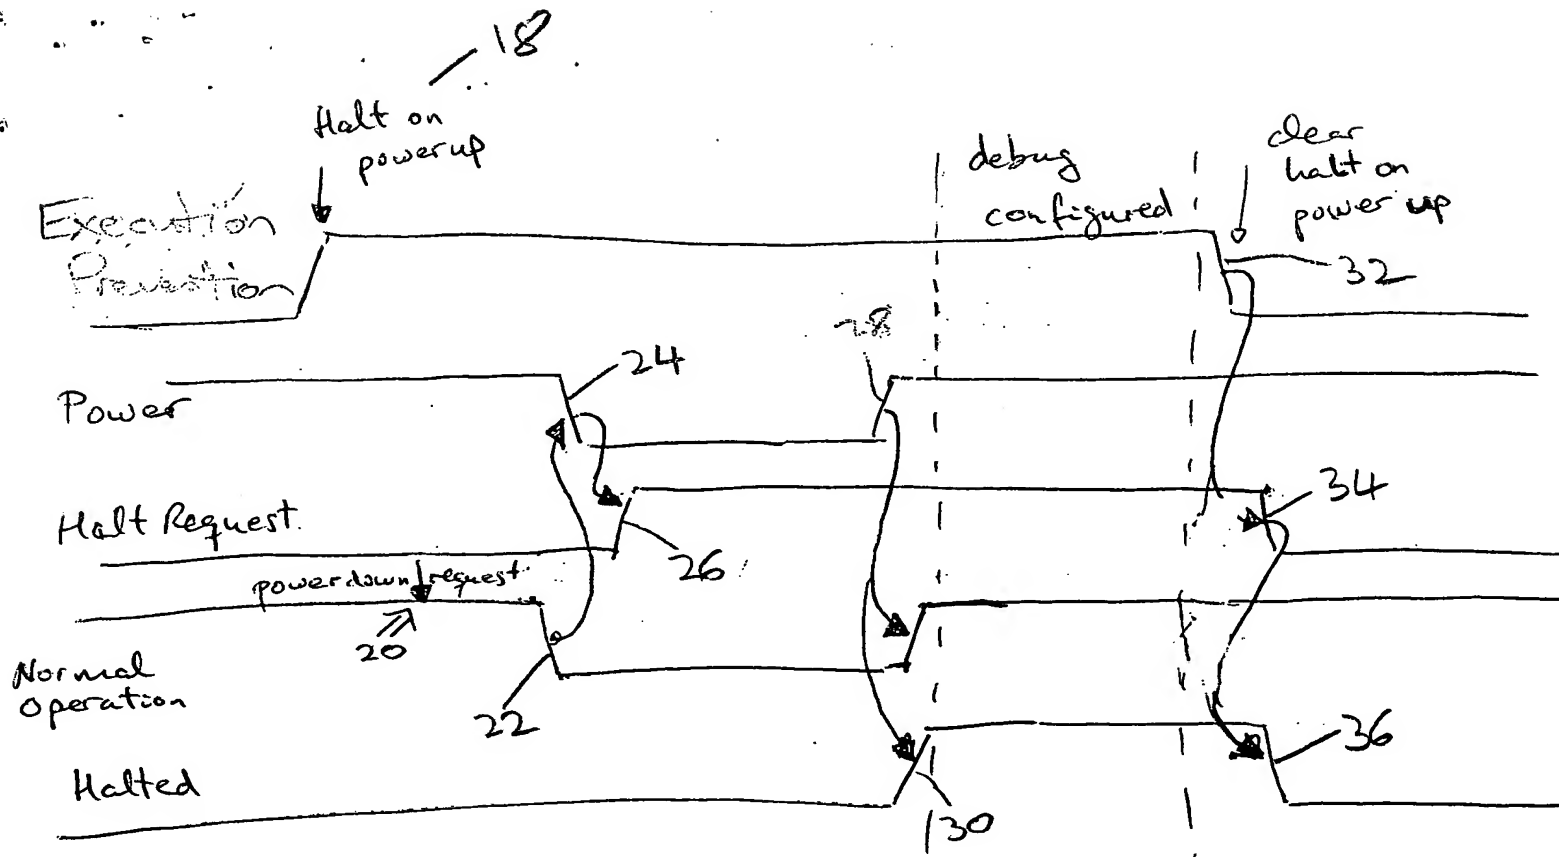 18
Halt on
powerup
debug
configured
clear
halt on
power up
Execution
Prevention
32
28
24
Power
34
Halt Request
26
powerdown request
20
Normal
Operation
22
36
Halted
30